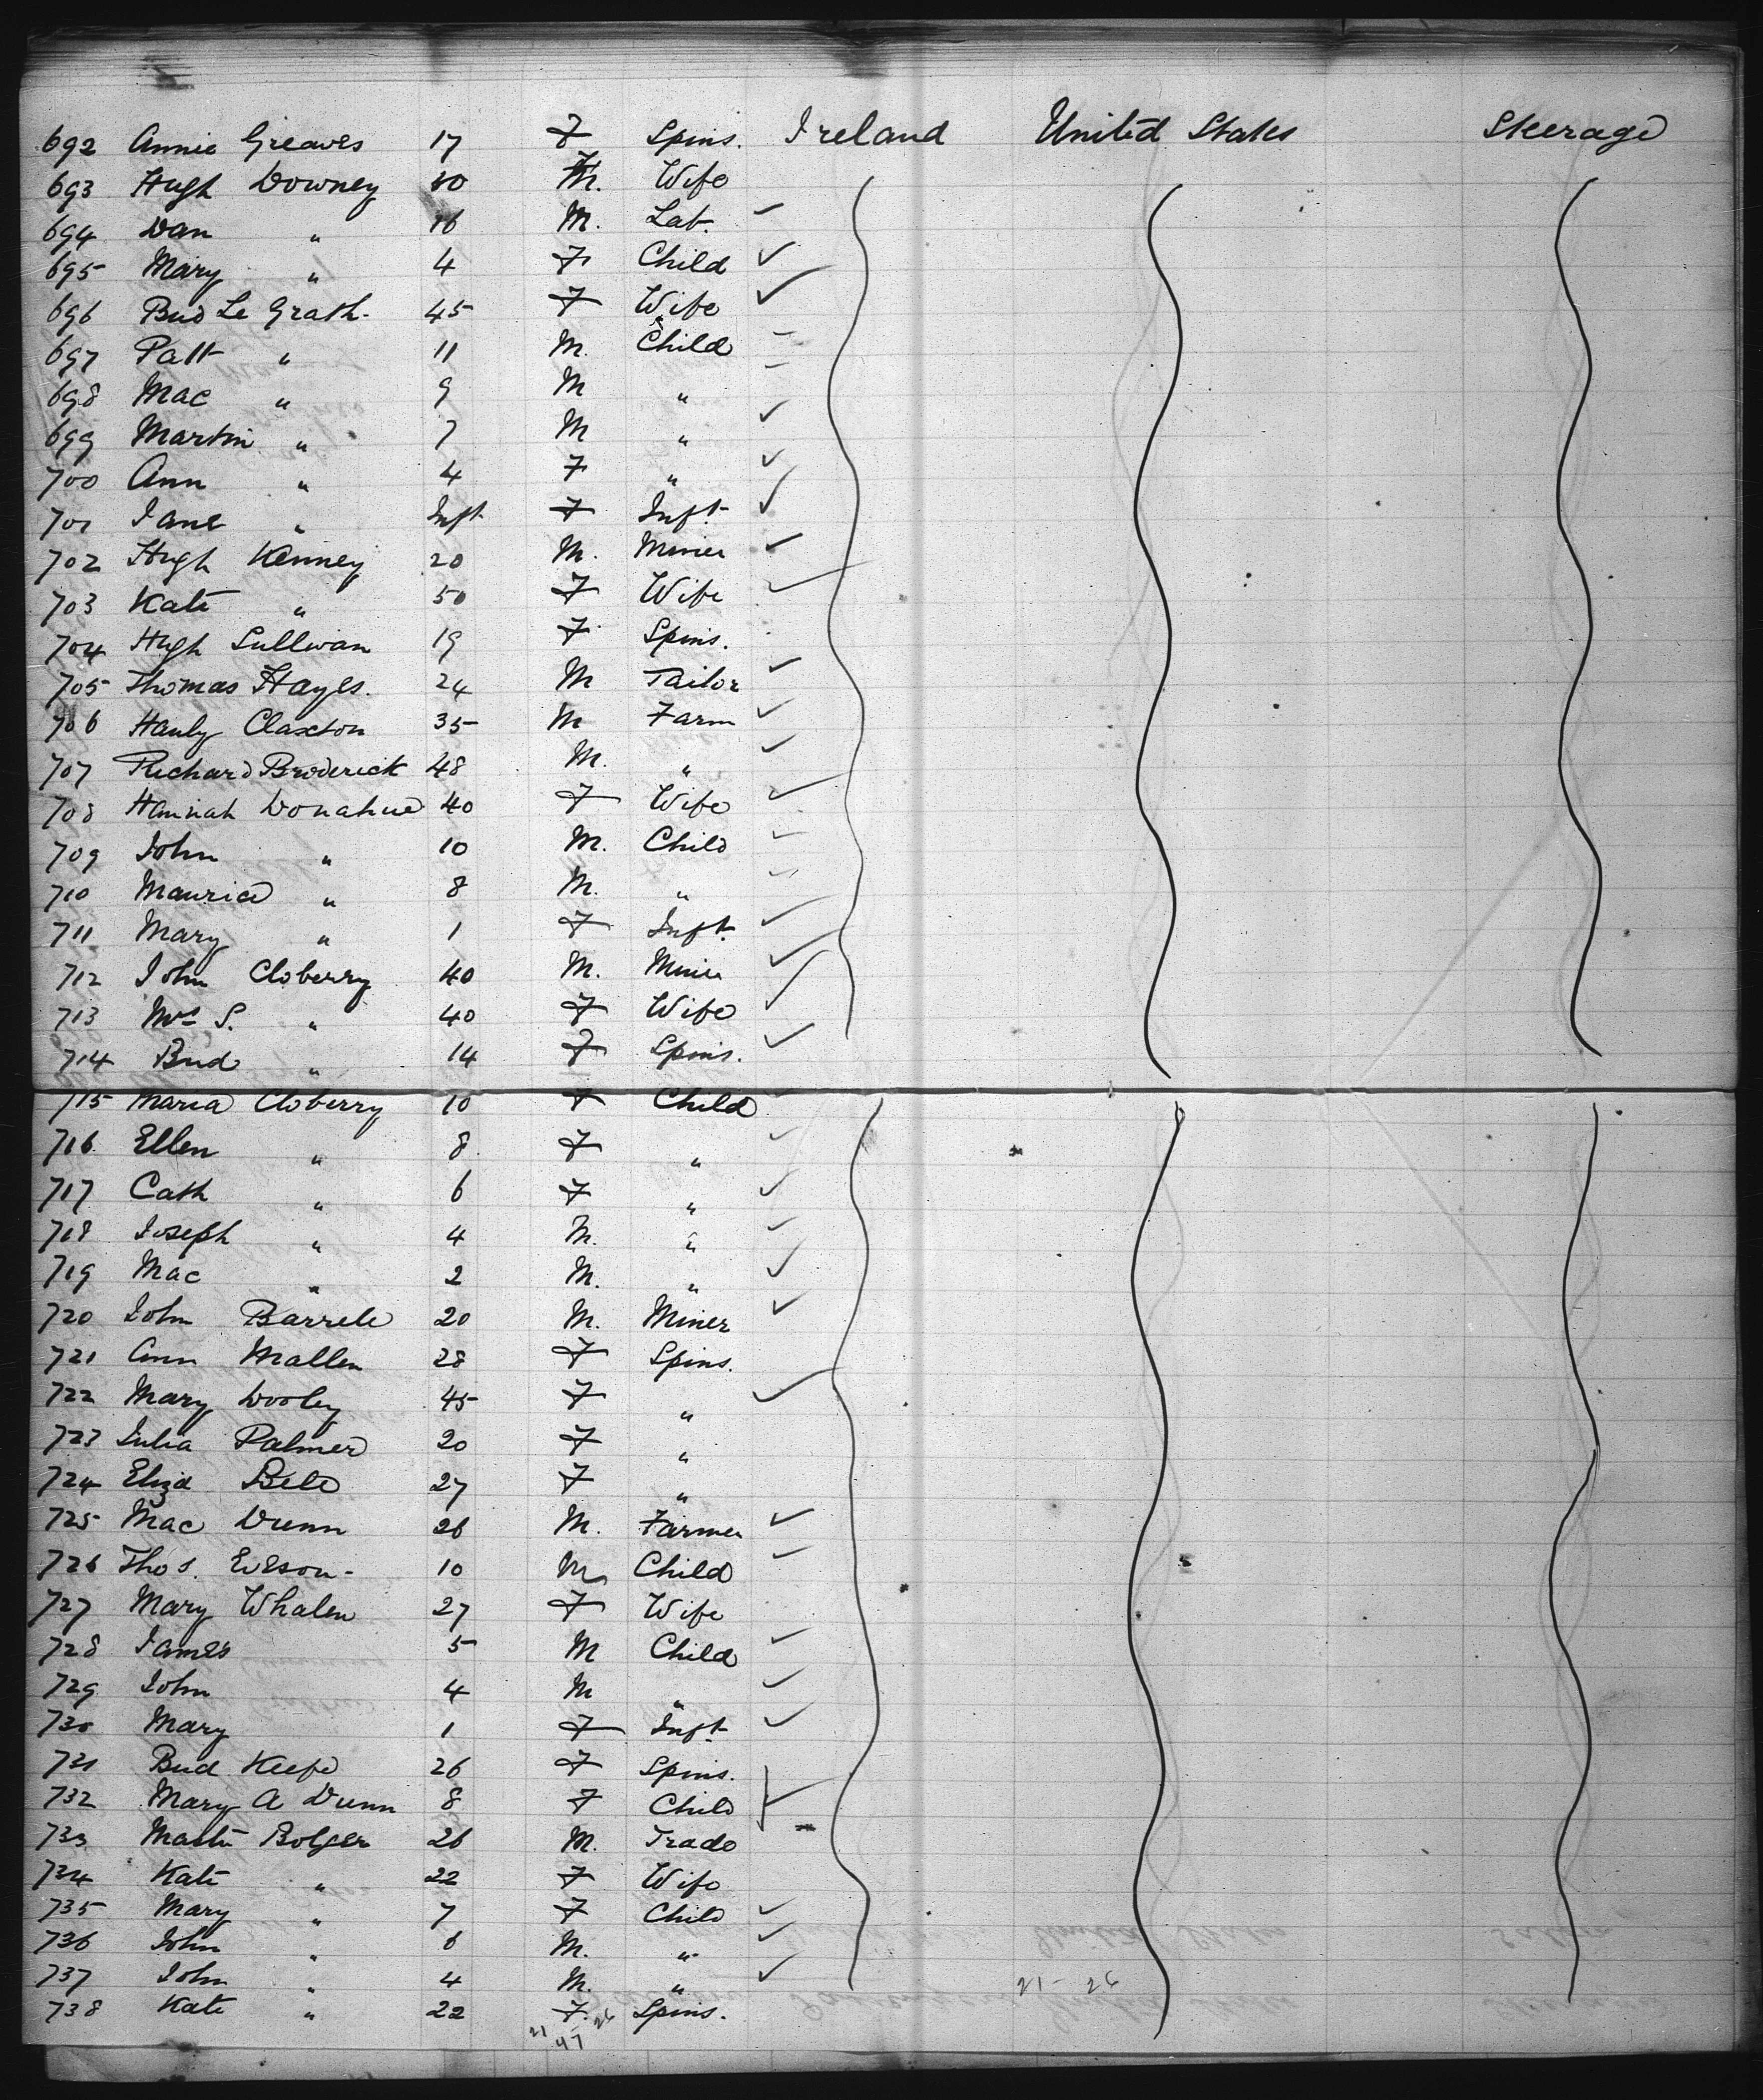 692 Annie Greaves 17 F Spins. Ireland United States Steerage
693 Hugh Downey 30 M. Wife
694 Dan " 16 M. Lab.
695 Mary " 4 F Child
696 Brid Le Grath 45 F Wife
697 Patt " 11 M. Child
698 Mac " 9 M "
699 Martin " 7 M "
700 Ann " 4 F "
701 Jane " Inft F Inft.
702 Hugh Kenney 20 M. Miner
703 Kate " 50 F Wife
704 Hugh Sullivan 19 F Spins.
705 Thomas Hayes. 24 M Tailor
706 Hanly Claxton 35 M Farm
707 Richard Broderick 48 M. "
708 Hannah Donahue 40 F Wife
709 John " 10 M. Child
710 Maurice " 8 M. "
711 Mary " 1 F Inft.
712 John Cloberry 40 M. Miner
713 Mrs S. " 40 F Wife
714 Brid " 14 F Spins.
715 Maria Cloberry 10 F Child
716 Ellen " 8 F "
717 Cath " 6 F "
718 Joseph " 4 M. "
719 Mac " 2 M. "
720 John Barrele 20 M. Miner
721 Ann Mallen 28 F Spins.
722 Mary Dooley 45 F "
723 Julia Palmer 20 F "
724 Eliza Bele 27 F "
725 Mac Dunn 26 M. Farmer
726 Thos. 10 M Child
727 Mary Whalen 27 F Wife
728 James 5 M Child
729 John 4 M "
730 Mary 1 F Inft
731 Brid Keefe 26 F Spins.
732 Mary A Dunn 8 F Child
733 Martin Bolger 26 M. Trade
734 Kate " 22 F Wife
735 Mary " 7 F Child
736 John " 6 M. "
737 John " 4 M. " 21 - 26
738 Kate " 22 F. Spins.
21 26
47